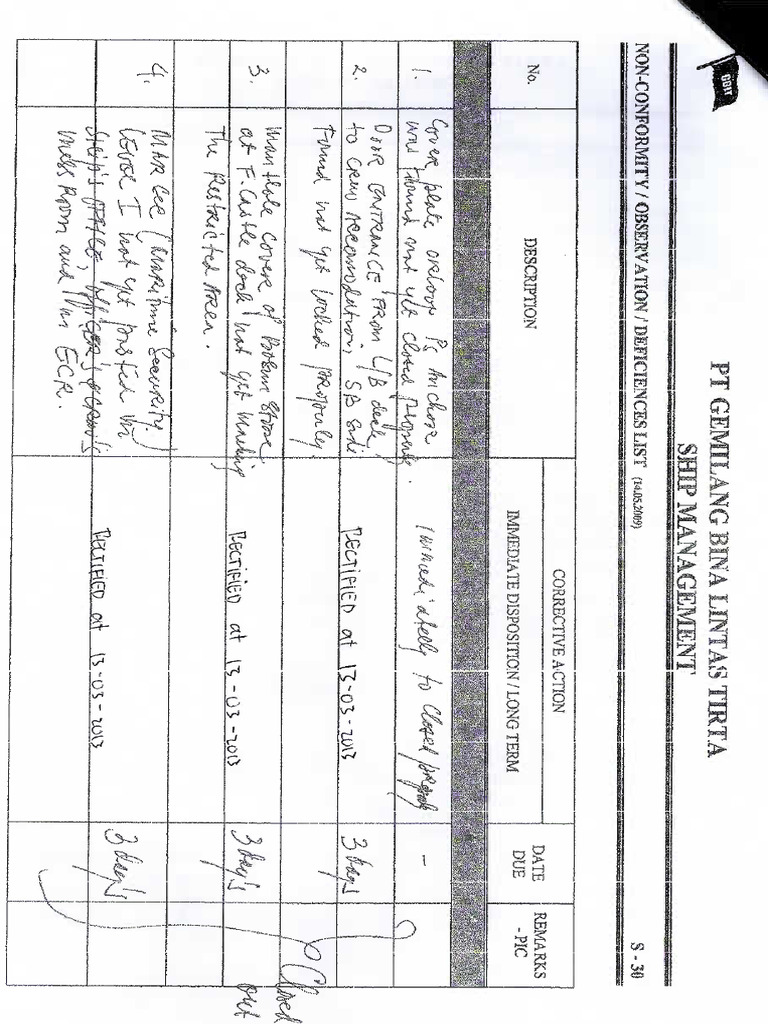 GBLT
PT GEMILANG BINA LINTAS TIRTA
SHIP MANAGEMENT
NON-CONFORMITY / OBSERVATION / DEFICIENCES LIST (14.05.2009)
S - 30
No.
DESCRIPTION
CORRECTIVE ACTION
IMMEDIATE DISPOSITION / LONG TERM
DATE
DUE
REMARKS
- PIC
1.
Cover plate Ps Anchore
was found not yet closed Properly.
Immediatelly to Closed
-
2.
Door ENTRANCE FROM L/B deck
to crew Accomodation, SB
found not yet locked properly
RECTIFIED at 13-03-2013
3 days
3.
Man Hole cover of Bosun Store
at F. Castle deck not yet marking
The Restricted Area.
RECTIFIED at 13-03-2013
3 day's
4.
MAR SEC (Maritime Security)
Level I not yet Posted in
Ship's office, officer's & crew's
Mess Room and in ECR.
RECTIFIED at 13-03-2013
3 day's
Closed
out